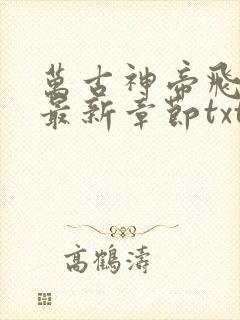 萬古神帝飛
最新章節txt
高鶴濤